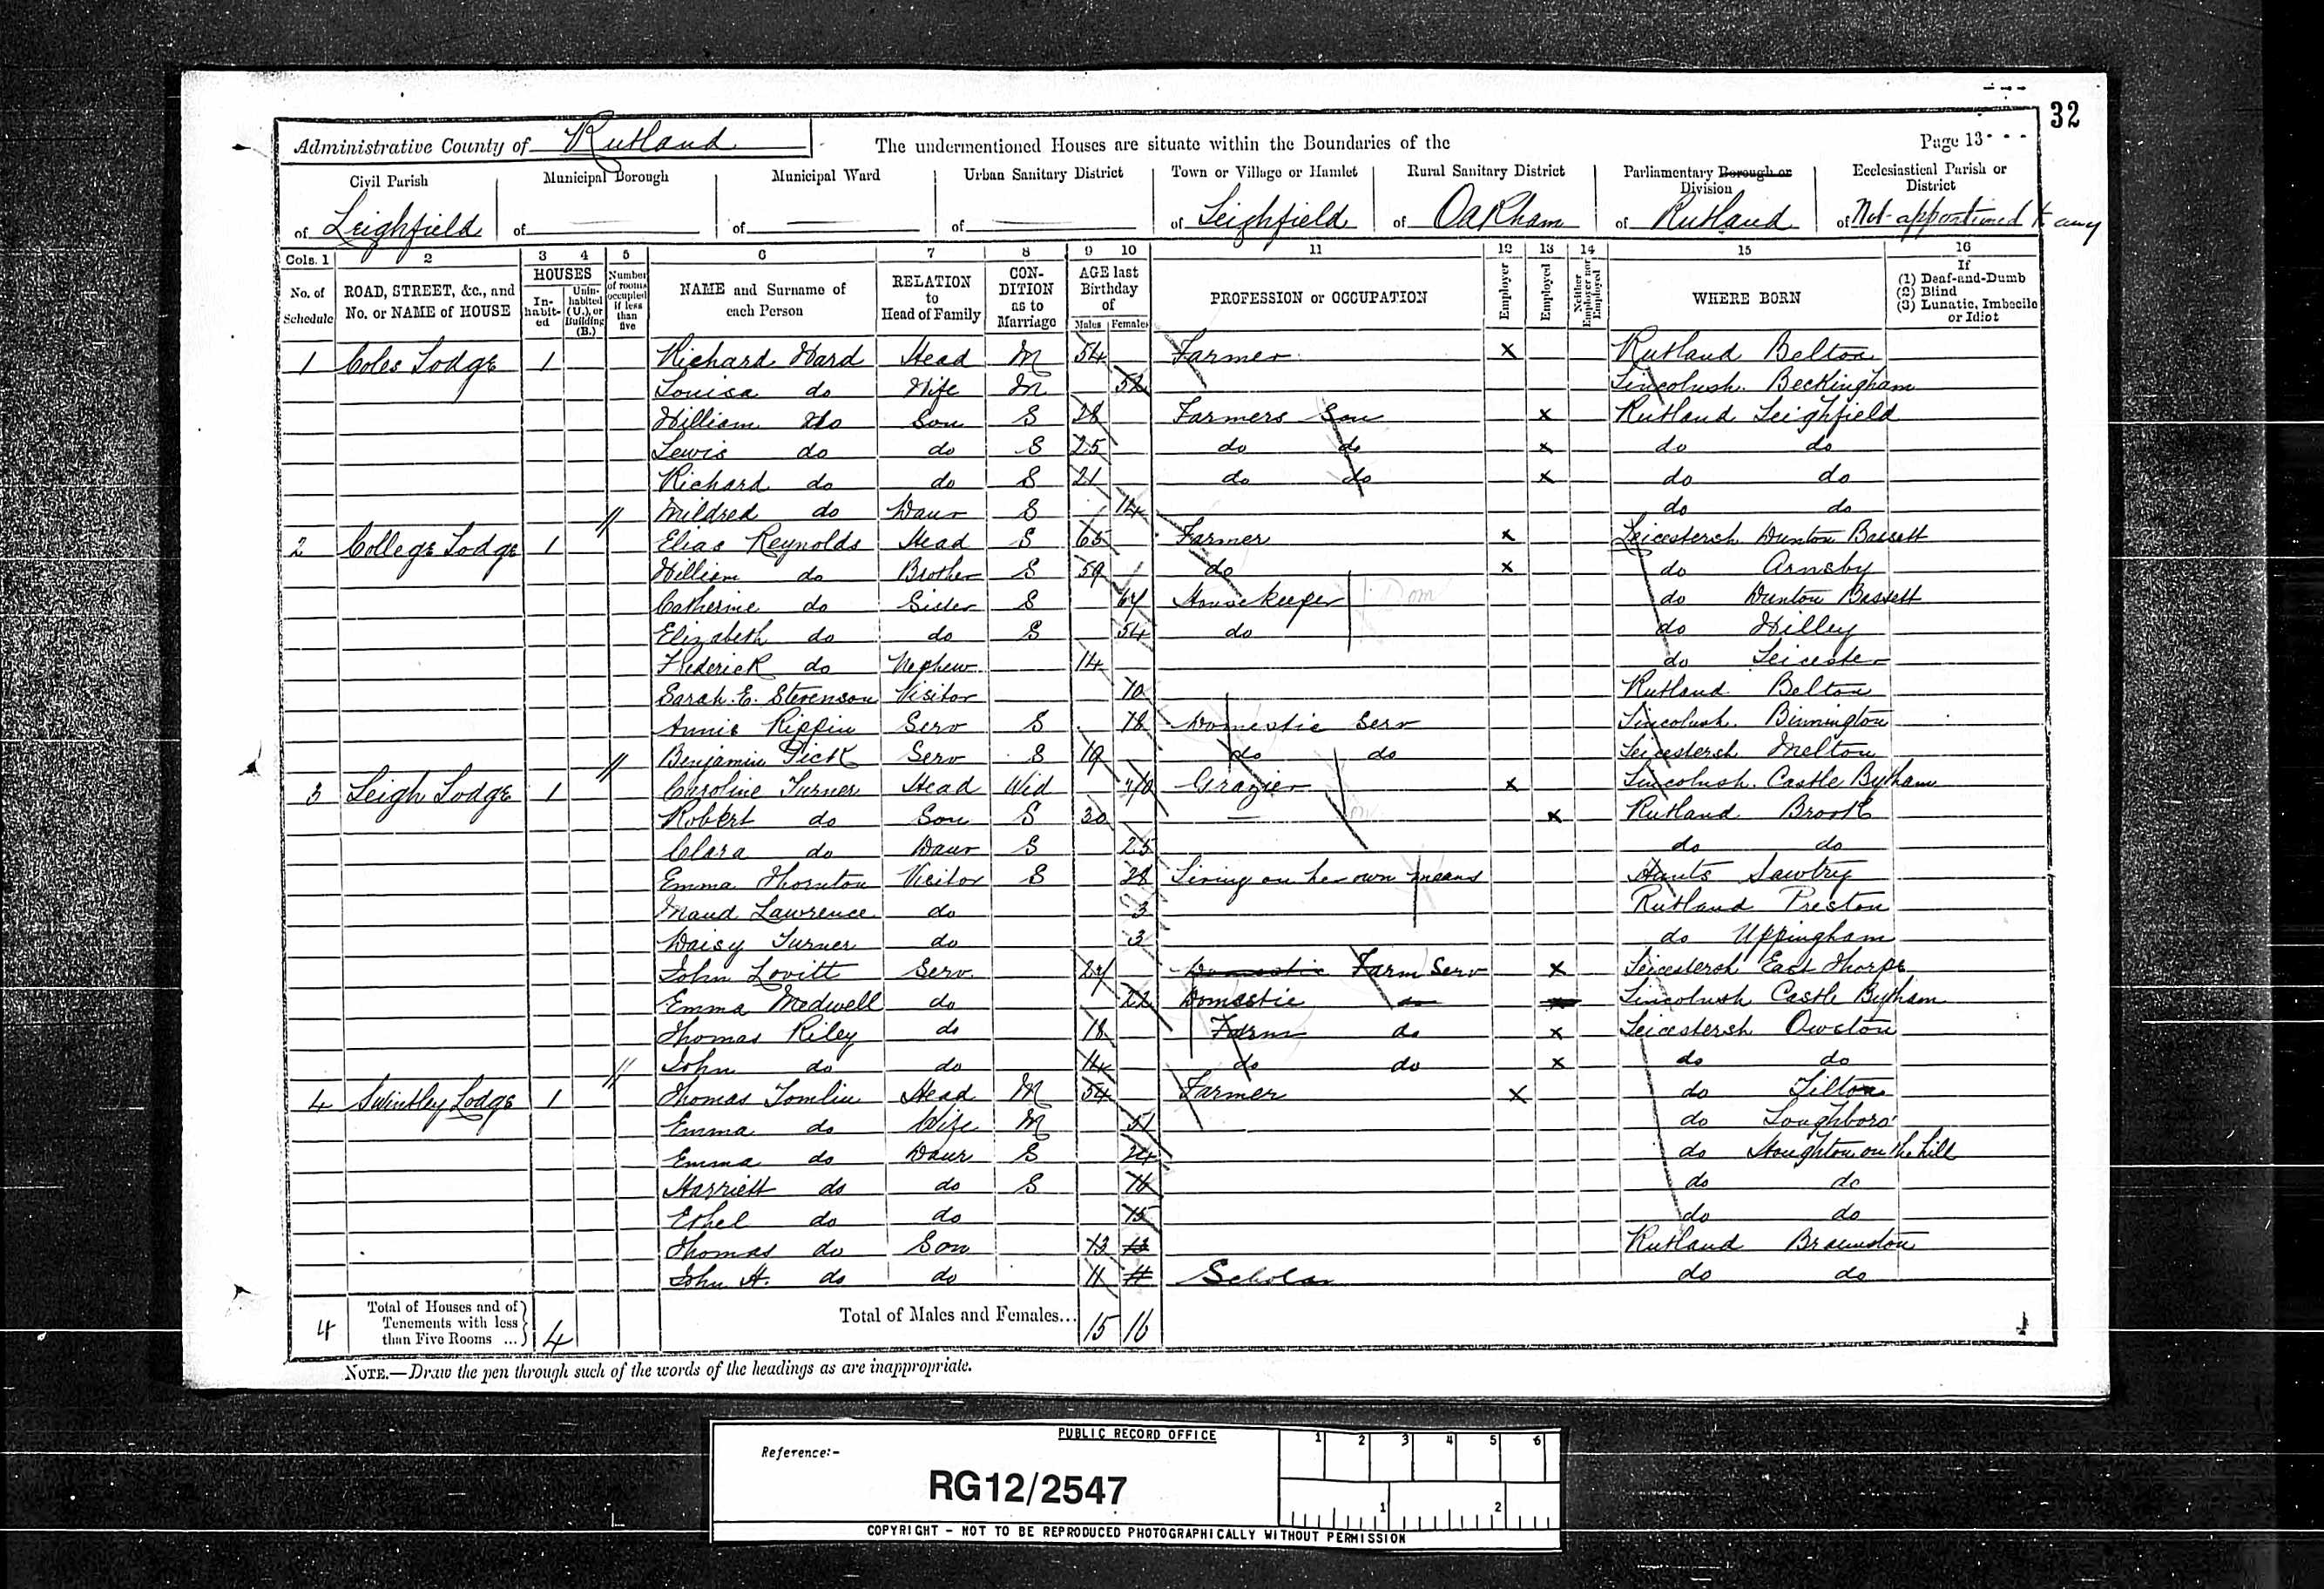 32
Administrative County of Rutland The undermentioned Houses are situate within the Boundaries of the Page 13
Civil Parish Municipal Borough Municipal Ward Urban Sanitary District Town or Village or Hamlet Rural Sanitary District Parliamentary Borough or Division Ecclesiastical Parish or District
of Leighfield of of of of Leighfield of Oakham of Rutland of Not apportioned to any
Cols. 1 2 3 4 5 6 7 8 9 10 11 12 13 14 15 16
No. of Schedule ROAD, STREET, &c., and No. or NAME of HOUSE HOUSES Inhabited Uninhabited (U.), or Building (B.) Number of rooms occupied if less than five NAME and Surname of each Person RELATION to Head of Family CONDITION as to Marriage AGE last Birthday of Males Females PROFESSION or OCCUPATION Employer Employed Neither Employer nor Employed WHERE BORN If (1) Deaf-and-Dumb (2) Blind (3) Lunatic, Imbecile or Idiot
1 Coles Lodge 1 Richard Ward Head M 54 Farmer x Rutland Belton
Louisa do Wife M 52 Lincolnsh. Beckingham
William do Son S 28 Farmers Son x Rutland Leighfield
Lewis do do S 25 do do x do do
Richard do do S 21 do do x do do
Mildred do Daur S 14 do do
2 College Lodge 1 Elias Reynolds Head S 65 Farmer x Leicestersh Dunton Bassett
William do Brother S 59 do x do Arnsby
Catherine do Sister S 67 Housekeeper Dom do Dunton Bassett
Elizabeth do do S 54 do do Hilley
Frederick do Nephew 14 do Leicester
Sarah. E. Stevenson Visitor 10 Rutland Belton
Annie Rippin Serv S 18 Domestic Serv Lincolnsh. Binnington
Benjamin Pick Serv S 19 do do Leicestersh Melton
3 Leigh Lodge 1 Caroline Turner Head Wid Grazier x Lincolnsh. Castle Bytham
Robert do Son S 30 x Rutland Brook
Clara do Daur S 25 do do
Emma Thornton Visitor S 28 Living on her own means Hunts Sawtry
Maud Lawrence do 3 Rutland Preston
Daisy Turner do 3 do Uppingham
John Lovitt Serv 27 Domestic Farm Serv x Leicestersh East Thorpe
Emma Medwell do 22 Domestic do Lincolnsh Castle Bytham
Thomas Riley do 18 Farm do x Leicestersh Owston
John do do 14 do do x do do
4 Swintley Lodge 1 Thomas Tomlin Head M 54 Farmer x do Tilton
Emma do Wife M 51 do Loughboro'
Emma do Daur S 24 do Houghton on the hill
Harriett do do S do do
Ethel do do 15 do do
Thomas do Son 13 13 Rutland Braunston
John H. do do 11 11 Scholar do do
4 Total of Houses and of Tenements with less than Five Rooms ... 4 Total of Males and Females... 15 16
NOTE.—Draw the pen through such of the words of the headings as are inappropriate.
PUBLIC RECORD OFFICE
Reference:-
RG12/2547
1 2 3 4 5 6
1 2
COPYRIGHT - NOT TO BE REPRODUCED PHOTOGRAPHICALLY WITHOUT PERMISSION